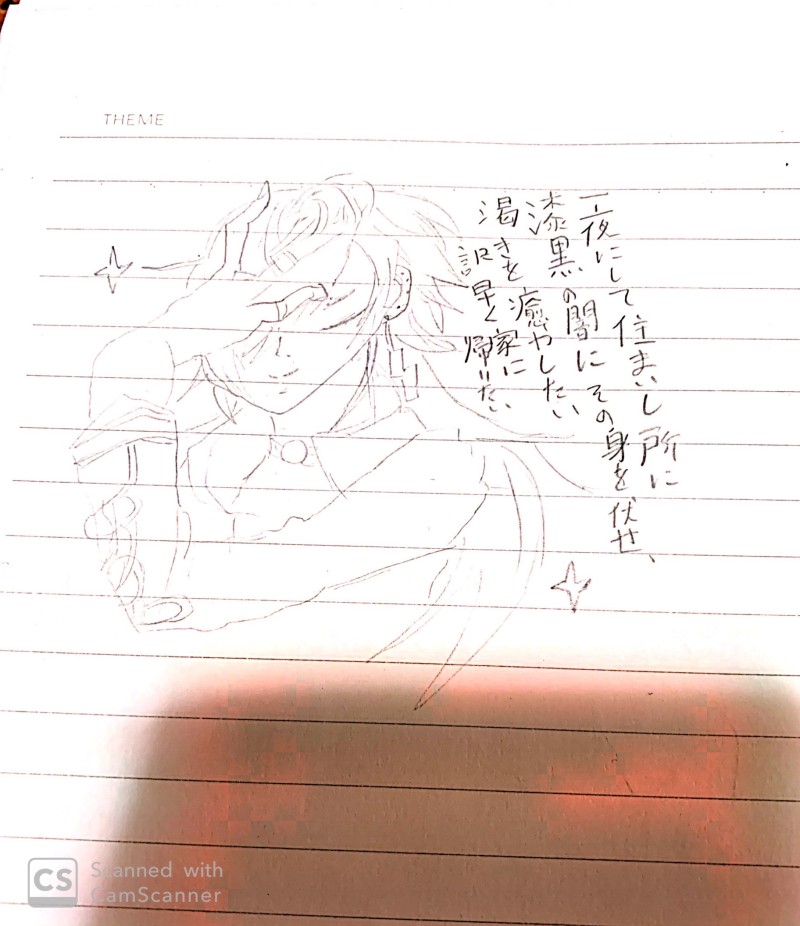 THEME
一夜にして住まいし所に
漆黒の闇にその身を伏せ、
渇きを癒やしたい
訳 早く家に帰りたい
CS Scanned with
CamScanner